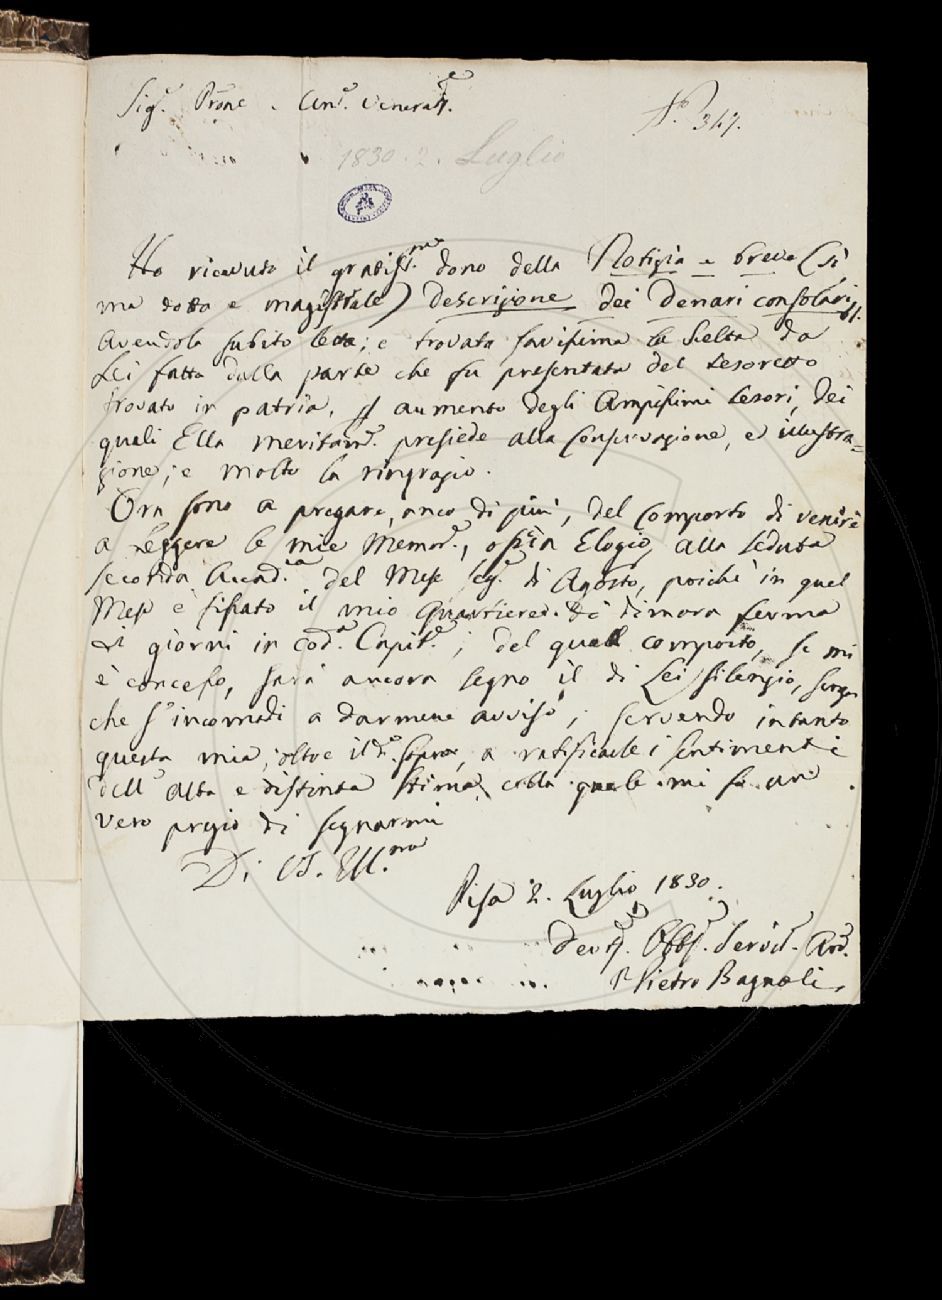 Sig.r Prone e Am.o Venerat.e
N.o 347.
1830. 2. Luglio
Ho ricevuto il gratiss.mo dono della Notizia e breve (sì
ma dotta e magistrale) descrizione dei denari consolari
avendola subito letta; e trovata savissima la scelta da
Lei fatta dalla parte che fu presentata del tesoretto
trovato in patria, aumento degli Ampissimi tesori, dei
quali Ella meritam.e presiede alla conservazione, e illustra=
zione; e molto la ringrazio.
Ora sono a pregare, anco di più, del comporto di venire
a leggere le mie Memor.e, ossia Elogio, alla seduta
seconda Accad.ca del Mese seg.e di Agosto, poichè in quel
Mese è fissato il mio quartiere di dimora ferma
giorni in cod.a Capit.e; del quale comporto, se mi
è concesso, sarà ancora segno il di Lei silenzio, senza
che s'incomodi a darmene avviso; servendo intanto
questa mia, oltre il d.o sopra, a ratificarle i sentimenti
dell' alta e distinta stima, colla quale mi fo un
vero pregio di segnarmi
Di VS. Ill.ma
Pisa 2. Luglio 1830.
Dev.mo Obb.mo Servit.e
Pietro Bagnoli